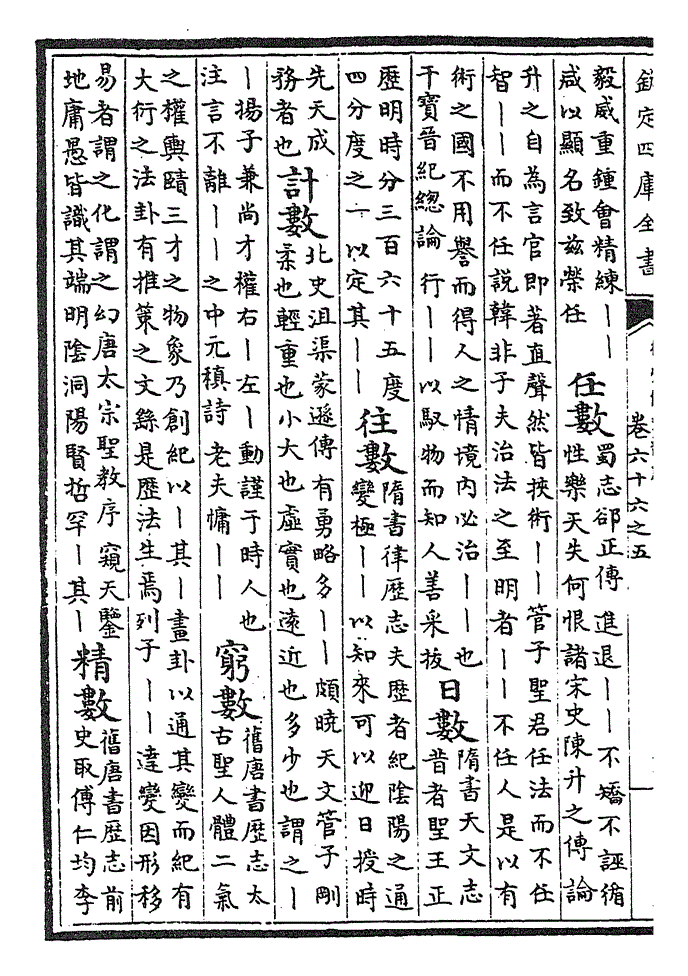 欽定四庫全書
卷六十六之五
毅威重鍾會精練｜｜
咸以顯名致兹榮任
任數
蜀志郤正傳 進退｜｜不矯不誣循
性樂天失何恨諸宋史陳升之傳論
升之自為言官即著直聲然皆挾術｜｜管子聖君任法而不任
智｜｜而不任説韓非子夫治法之至明者｜｜不任人是以有
術之國不用譽而得人之情境内必治｜｜也
干寶晉紀總論 行｜｜以馭物而知人善采拔
日數
隋書天文志
昔者聖王正
歷明時分三百六十五度
四分度之一以定其｜｜
往數
隋書律歷志夫歷者紀陰陽之通
變極｜｜以知來可以迎日授時
先天成
務者也
計數
北史沮渠蒙遜傳有勇略多｜｜頗曉天文管子剛
柔也輕重也小大也虚實也遠近也多少也謂之｜
｜揚子兼尚才權右｜左｜動謹于時人也
注言不離｜｜之中元稹詩 老夫慵｜｜
窮數
舊唐書歷志太
古聖人體二氣
之權輿賾三才之物象乃創紀以｜其｜畫卦以通其變而紀有
大衍之法卦有推策之文繇是歷法生焉列子｜｜達變因形移
易者謂之化謂之幻唐太宗聖教序 窺天鑒
地庸愚皆識其端明陰洞陽賢哲罕｜其｜
精數
舊唐書歷志前
史取傅仁均李